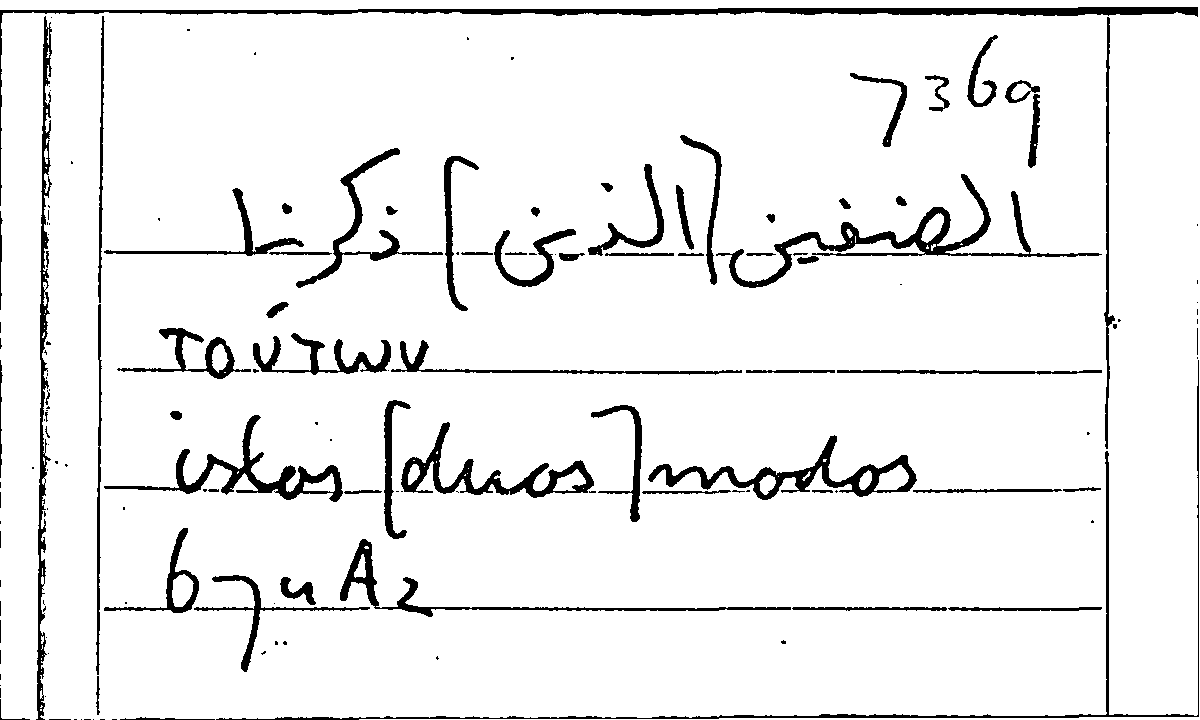 7369
الصنفين [الذين] ذكرنا
τούτων
istos [duos] modos
674A2